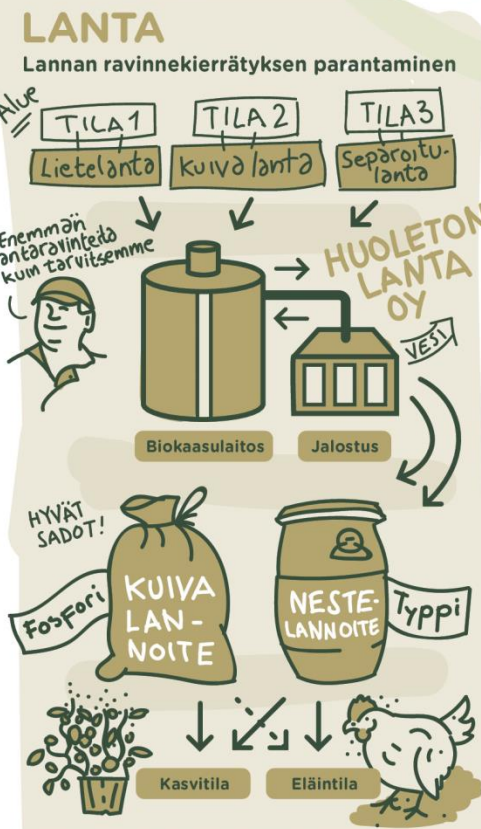 LANTA
Lannan ravinnekierrätyksen parantaminen
Alue
TILA 1
TILA 2
TILA 3
Lietelanta
Kuiva lanta
Separoitu-
lanta
Enemmän
lantaravinteita
kuin tarvitsemme
HUOLETON
LANTA
OY
VESI
Biokaasulaitos
Jalostus
HYVÄT
SADOT!
Fosfori
KUIVA
LAN-
NOITE
NESTE-
LANNOITE
Typpi
Kasvitila
Eläintila